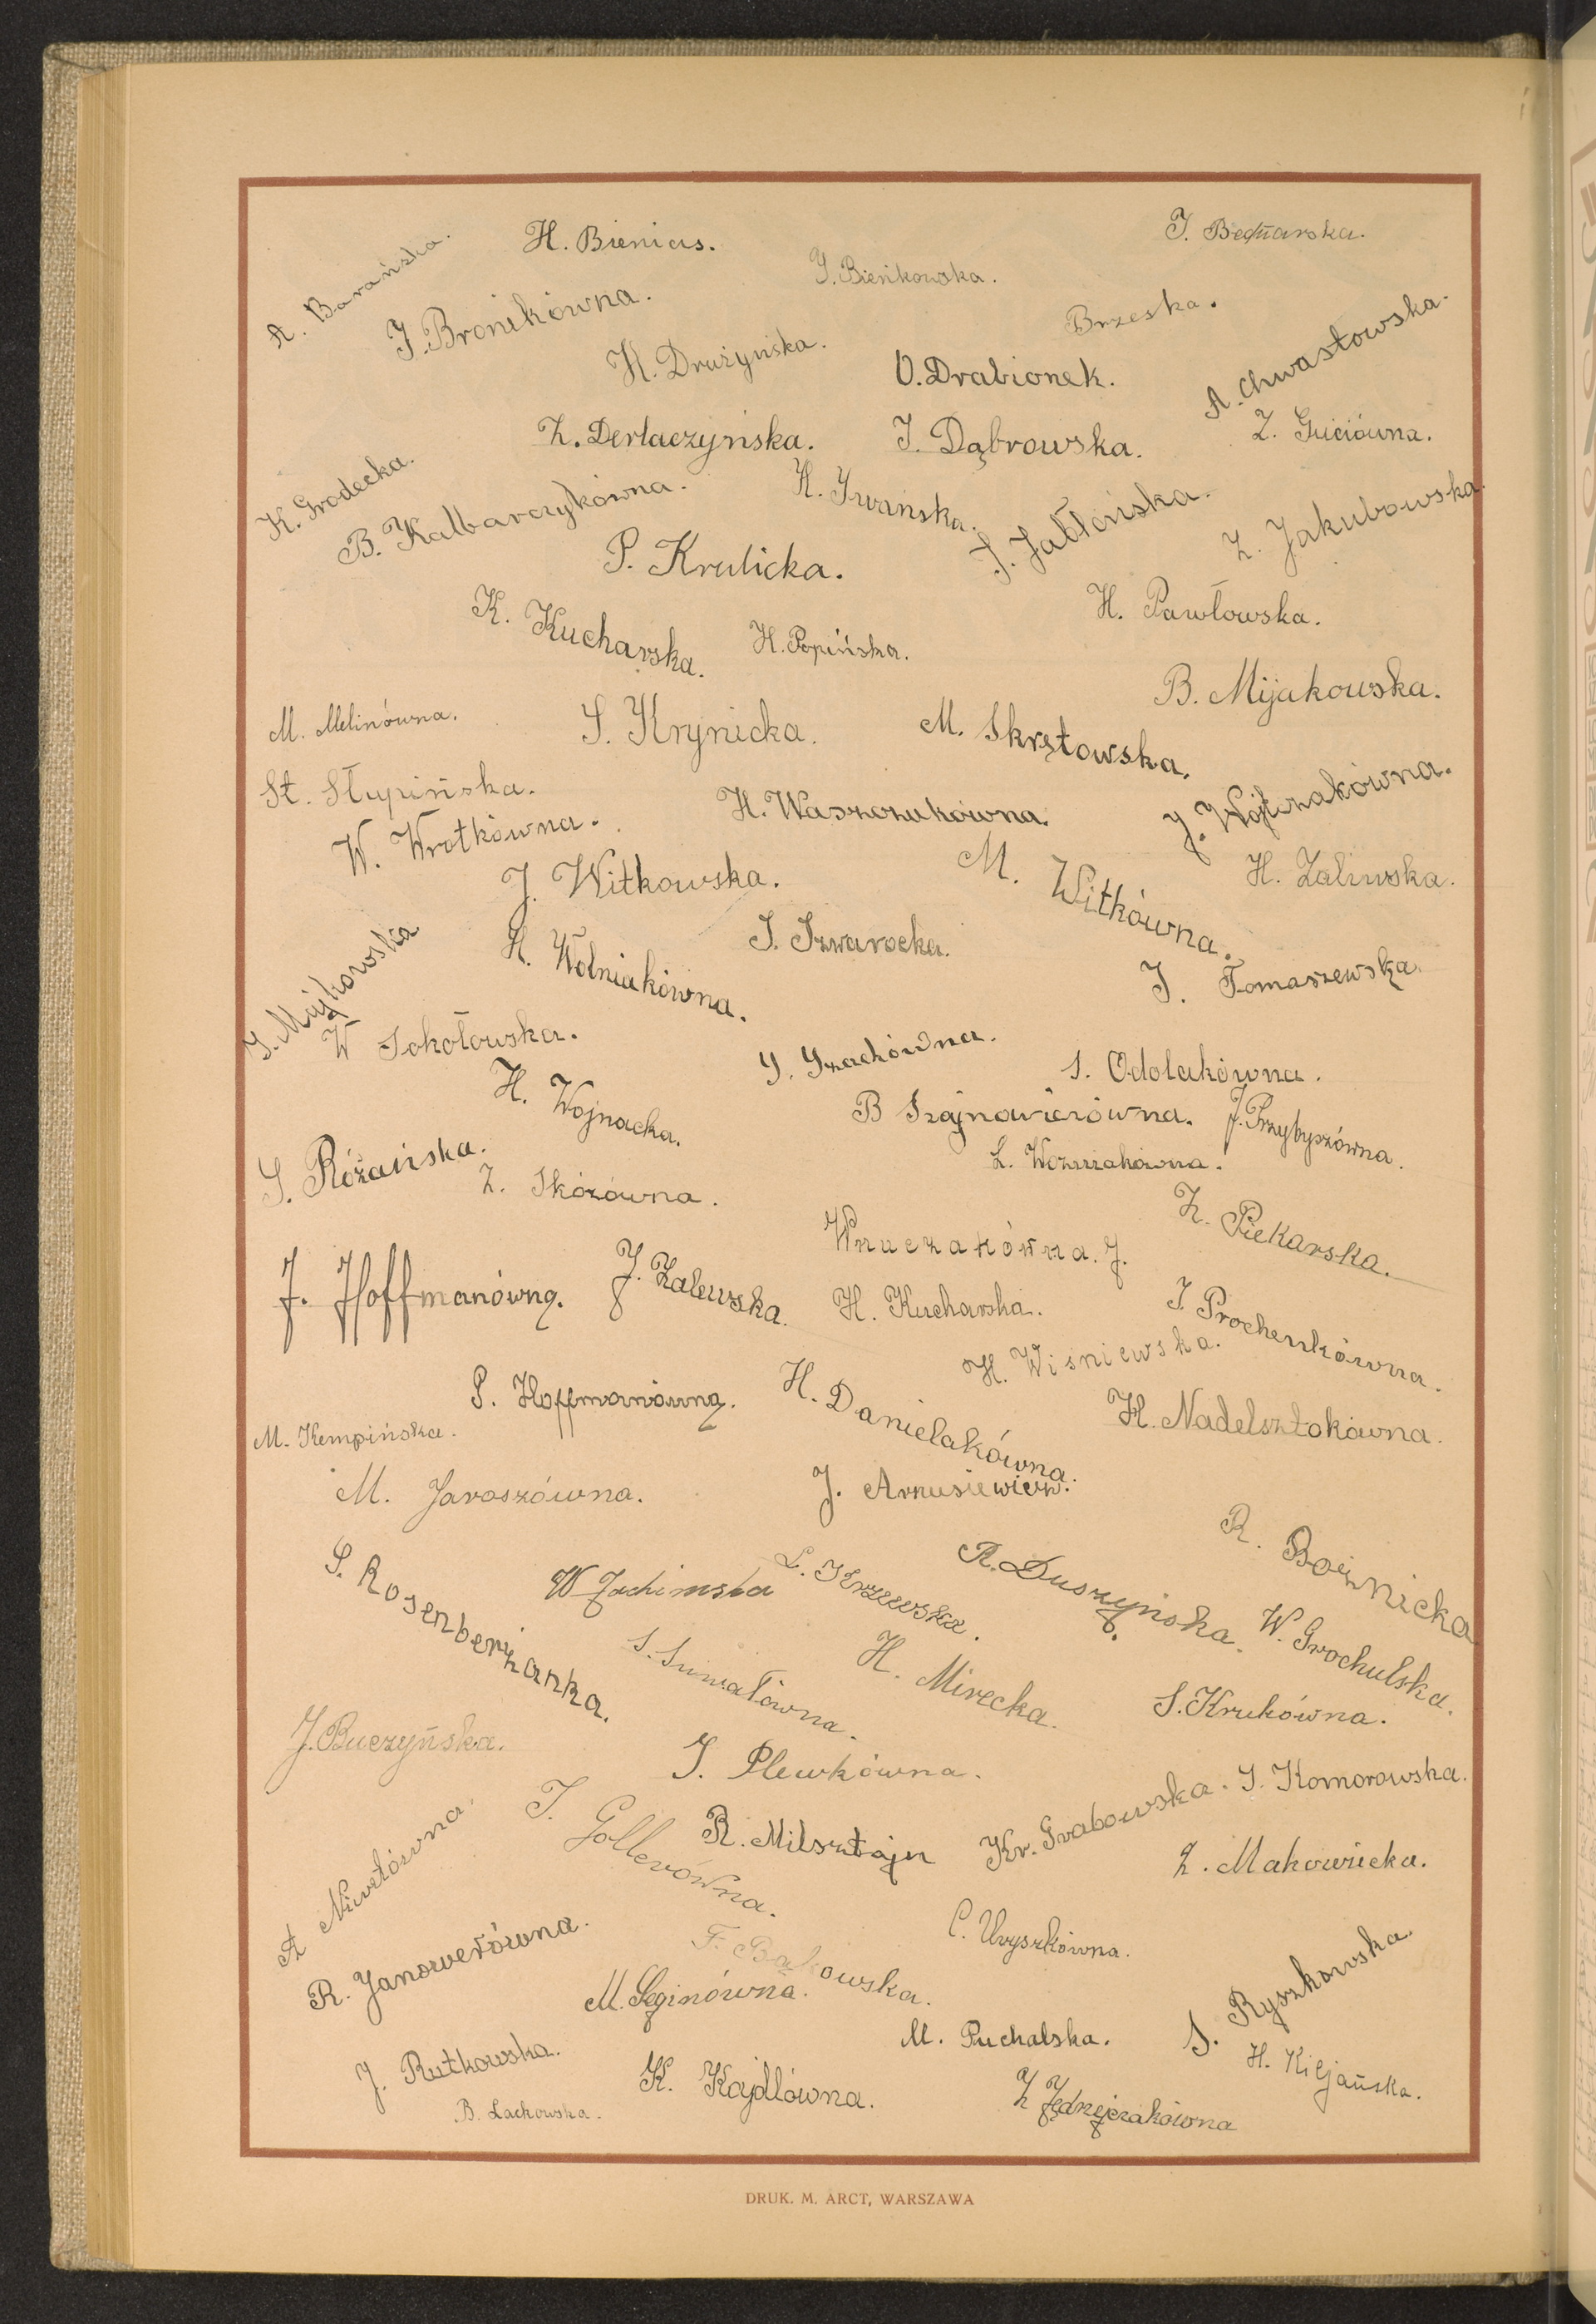 A. Barańska.
H. Bienias.
J. Bieńkowska.
J. Bednarska.
J. Bronikówna.
Brzeska.
H. Drużyńska.
O. Drabionek.
A. Chwastowska.
Z. Derlaczyńska.
J. Dąbrowska.
Z. Guciówna.
K. Grodecka.
B. Kalbarczykówna.
H. Iwańska.
J. Jabłońska.
Z. Jakubowska.
P. Krulicka.
K. Kucharska.
H. Popińska.
H. Pawłowska.
B. Mijakowska.
M. Melinówna.
S. Krynicka.
M. Skrętowska.
St. Słupińska.
W. Wrotkówna.
H. Waszczukówna.
J. Wojtczakówna.
J. Witkowska.
M. Witkówna.
H. Zalewska.
J. Majkowska
H. Wolniakówna.
J. Szwarocka.
J. Tomaszewska.
W Sokołowska.
S. Szachówna.
S. Odolakówna.
H. Wojnacka.
B Szajnowiczówna.
J. Przybyszówna.
S. Różańska.
Z. Skózówna.
L. Woźniakówna.
Z. Piekarska.
Wnuczakówna. J.
J. Hoffmanówna.
J. Zalewska.
H. Kucharska.
J Prochenkówna.
H. Wiśniewska.
P. Hoffmanówna.
H. Danielakówna.
H. Nadelsztokówna.
M. Kempińska.
M. Jaroszówna.
J. Arkusiewicz.
R. Boźnicka
S. Rosenberżanka.
W Jachimska
L. Skrzewska.
R. Duszyńska.
W. Grochulska.
S. Suwałówna.
H. Mirecka.
S. Krukówna.
J. Buczyńska.
J. Plewkówna.
J. Komorowska.
J. Gollerówna.
R. Milsztajn
Kr. Grabowska.
Z. Makowiecka.
A Niwetówna.
R. Janowerówna.
F. Bąkowska.
C. Uryszkówna.
M. Seginówna.
S. Ryszkowska.
M. Puchalska.
J. Rutkowska.
K. Kajdlówna.
H. Kiljańska.
B. Lachowska.
Z Jędrzejczakówna
DRUK. M. ARCT, WARSZAWA